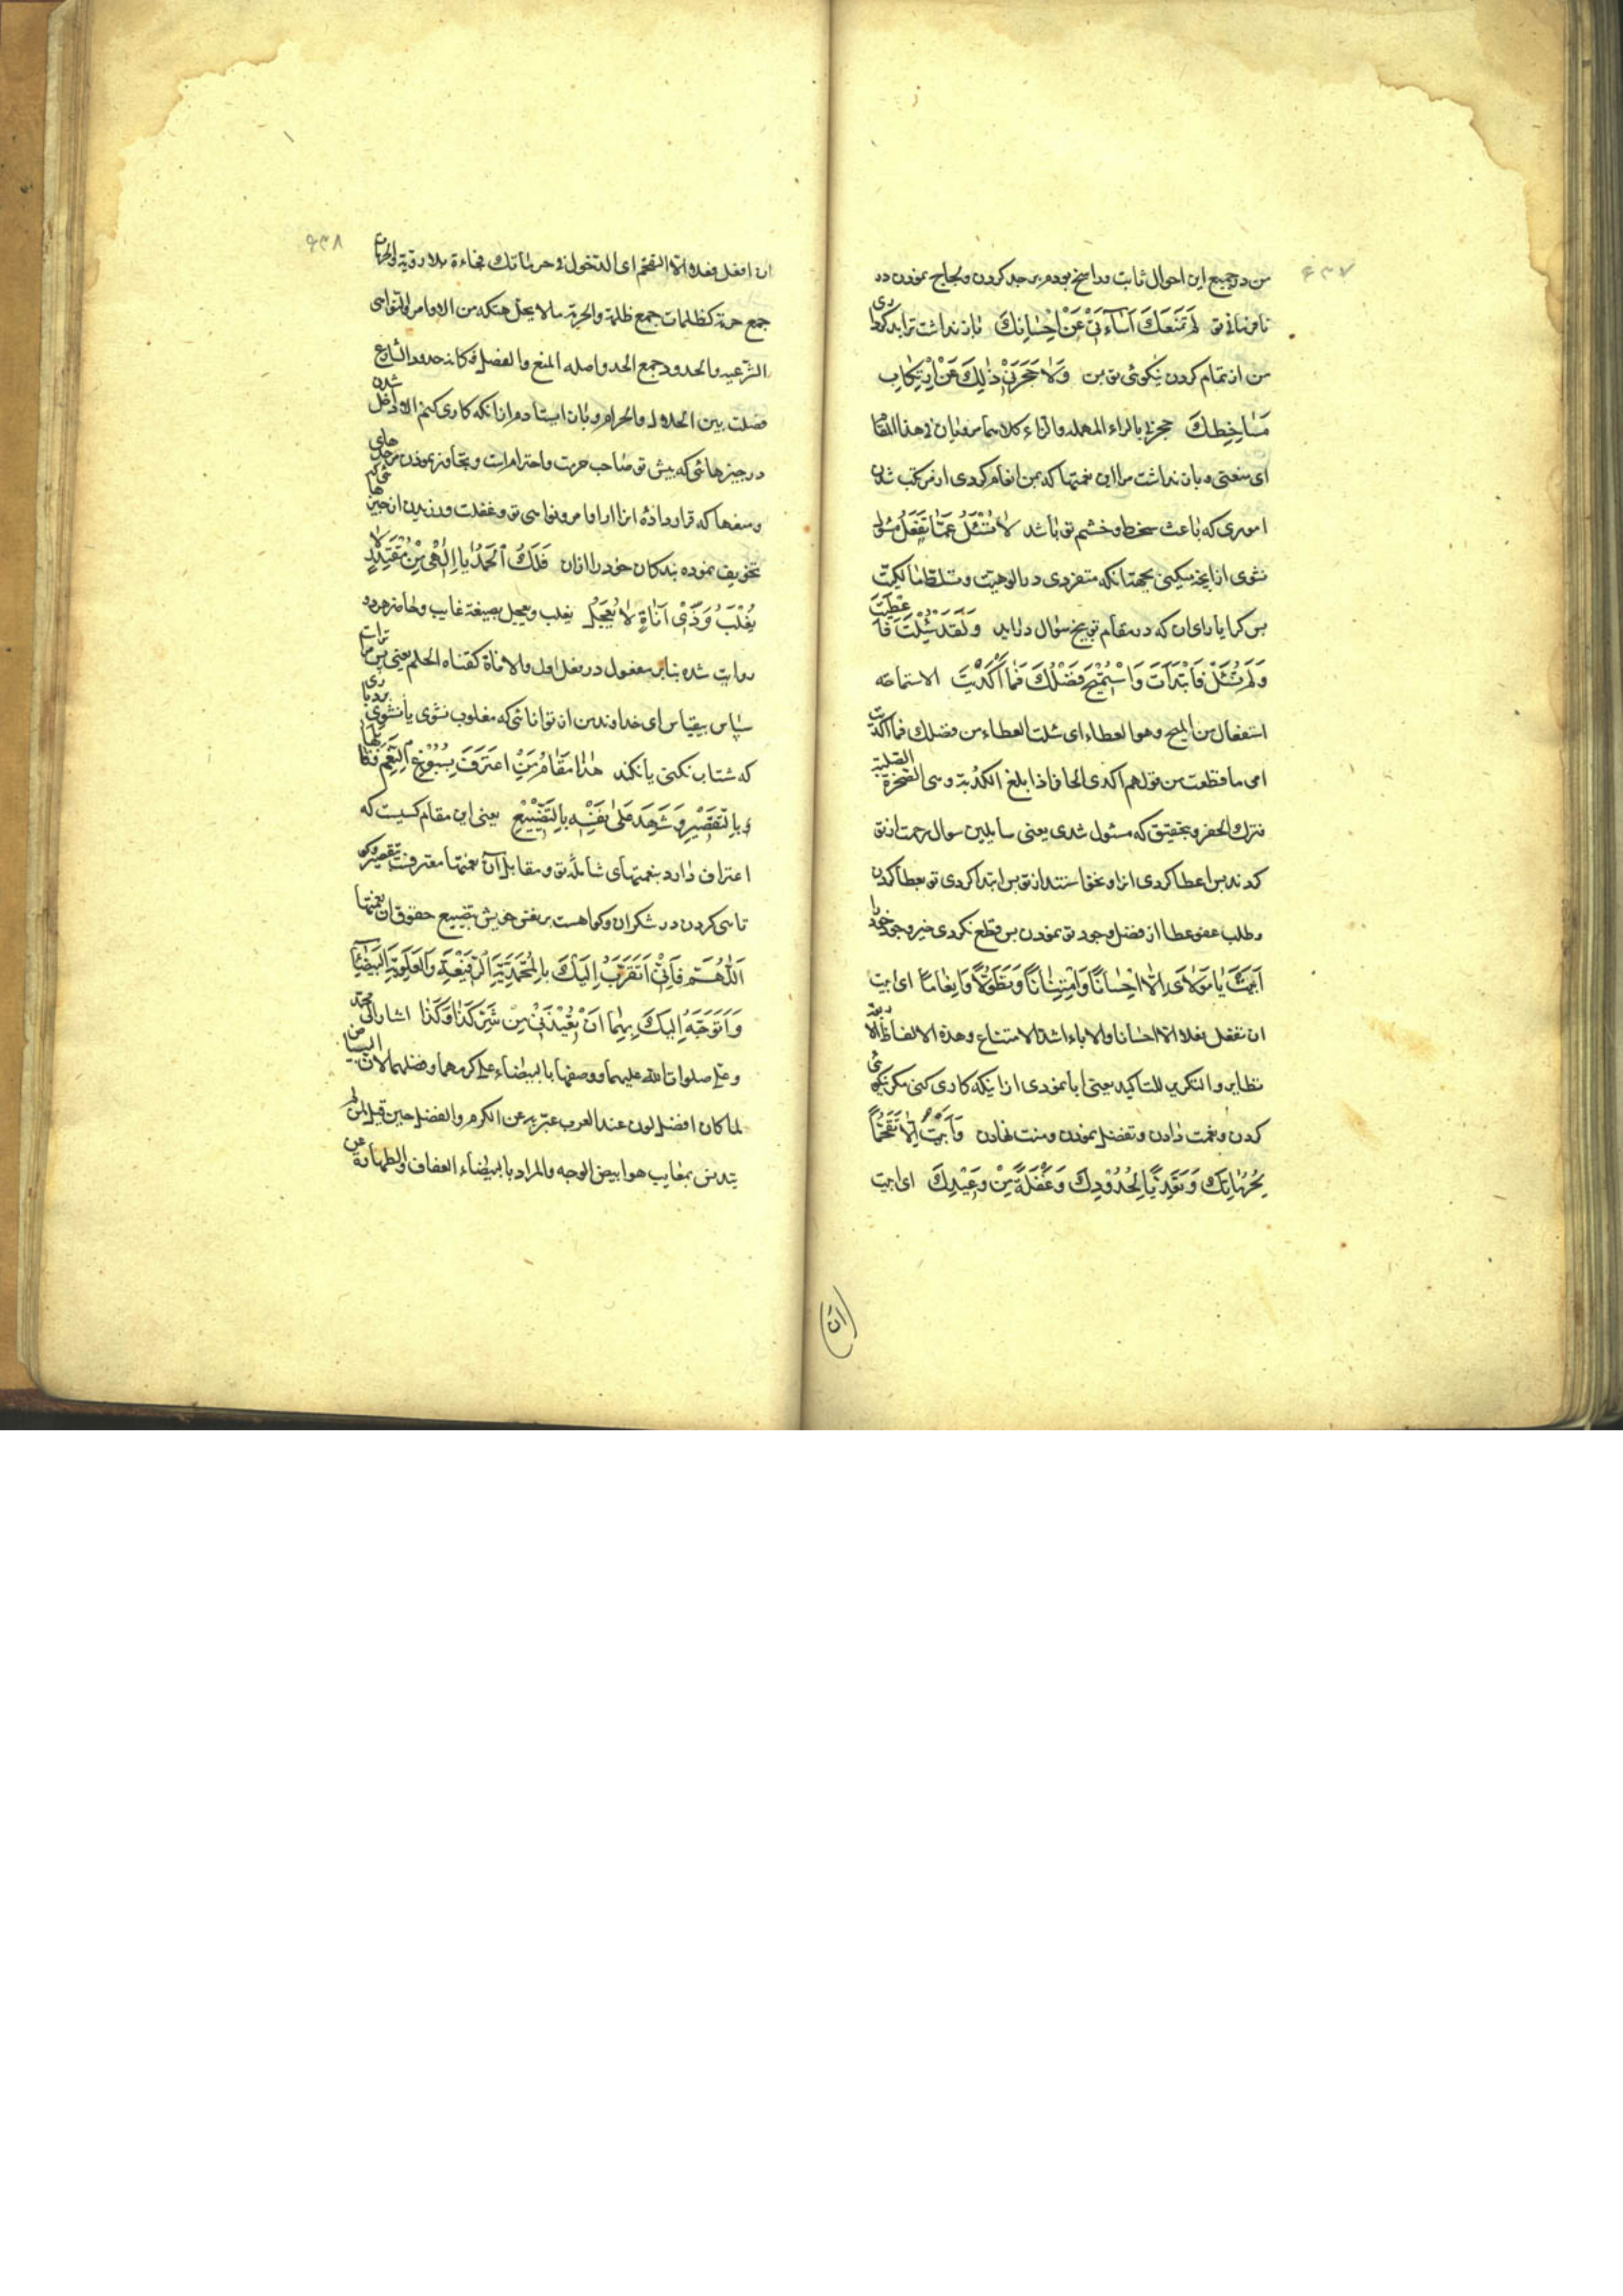 ۶۳۷
من در جمیع این احوال ثابت و راسخ بودم بر جد کردن و لجاج نمودن در
نافرمانی تو لَمْ تَمْنَعْكَ اَسٰاءَتِیْ عَنْ اِحْسٰانِكَ باز نداشت ترا بدکرداری
من از تمام کردن نیکوئی تو بمن وَلٰا حَجَرَنِیْ ذٰلِكَ عَنْ اِرْتِكٰابِ
مَسٰاخِطِكَ حجزنی بالراء المهمله والزاء کلاهما مرویان فی هذا المقام
ای منعنی و باز نداشت مرا این نعمتها که بمن انعام کردی از مرتکب شدن
اموری که باعث سخط و خشم تو باشد لٰا تُسْئَلُ عَمّٰا تَفْعَلُ مسئول
نشوی از انچه میکنی بجهة انکه متفردی در الوهیت و تسلط مالکیت
پس کرا یارای ان که در مقام توبیخ سؤال درآید وَلَقَدْ سُئِلْتَ فَاَعْطَیْتَ
وَلَمْ تُسْئَلْ فَابْتَدَأْتَ وَاسْتُمِیْحَ فَضْلُكَ فَمٰا اَكْدَیْتَ الاستماحه
استفعال من المیح وهو العطاء ای سئلت العطاء من فضلك فما اکدیت
ای ما قطعت من قولهم اکدی الحافر اذا بلغ الکدیة وهی الصخرة الصلبة
فترك الحفر و بتحقیق که مسئول شدی یعنی سایلین سوال رحمت از تو
کردند پس اعطا کردی انرا و نخواستند از تو پس ابتدا کردی تو بعطا کردن
و طلب عفو عطا از فضل وجود تو نمودن پس قطع نکردی خیر وجود خود را
اَبَیْتَ یٰا مَوْلاٰیَ اِلّٰا اِحْسٰانًا وَامْتِنٰانًا وَتَطَوُّلًا وَاِنْعٰامًا ای ابیت
ان تفعل بفعلا الا احسانا والاباء اشد الامتناع وهذه الالفاظ الاربعة
نظایر والتکریر للتاکید یعنی ابا نمودی از اینکه کاری کنی مکر نیکوئی
کردن و نعمت دادن و تفضل نمودن و منت نهادن وَاَبَیْتُ اِلّٰا تَقَحُّمًا
بِحُرُمٰاتِكَ وَتَعَدِّیًا لِحُدُوْدِكَ وَغَفْلَةً مِنْ وَعِیْدِكَ ای ابیت
(ان)
۶۳۸
ان افعل فعلا الا التقحم ای الدخول فی حرماتك فجاءة بلا رویة والحرمات
جمع حرمة کظلمات جمع ظلمة والحرمة ما لا یحل هتکه من الاوامر والنواهی
الشرعیه والحدود جمع الحد واصله المنع والفصل فکان حدود الشارع
فصلت بین الحلال والحرام و بان ایستادم از انکه کاری کنم الا داخل شدن
در چیزهائی که پیش تو صاحب حرمت و احترام است و تجاوز نمودن از حدهای
و منعها که قرار دادهٔ انرا از اوامر و نواهی تو و غفلت ورزیدن از چیزهائی که
تخویف نموده بندکان خود را ازان فَلَكَ الْحَمْدُ یٰا اِلٰهِیْ مِنْ مُقْتَدِرٍ لٰا
یُغْلَبُ وَذِیْ اَنٰاةٍ لٰا یُعَجِّلُ یغلب و یعجل بصیغه غایب و حاضر هر دو
روایت شده بنابر مفعول در فعل اول والاناة کقناة الحلم یعنی پس مر تراست
سپاس بیقیاس ای خداوند من ان توانائی که مغلوب نشوی یا نشوی بردباری
که شتاب نکنی یا نکند هٰذٰا مَقٰامُ مَنِ اعْتَرَفَ بِسُبُوْغِ النِّعَمِ فَقٰابَلَهٰا
بِالتَّقْصِیْرِ وَشَهِدَ عَلیٰ نَفْسِهِ بِالتَّضْیِیْعِ یعنی این مقام کسیست که
اعتراف دارد بنعمتهای شاملهٔ تو و مقابل آن نعمتها معترفست بتقصیر و کو
تاهی کردن در شکر ان و کواهست بر نفس خویش بتضییع حقوق ان نعمتها
اَللّٰهُمَّ فَاِنِّیْ اَتَقَرَّبُ اِلَیْكَ بِالْمُحَمَّدِیَّةِ الرَّفِیْعَةِ وَالْعَلَوِیَّةِ الْبَیْضٰاءِ
وَاَتَوَجَّهُ اِلَیْكَ بِهِمٰا اَنْ تُعِیْذَنِیْ مِنْ شَرِّ كَذٰا وَكَذٰا اشار الی محمد
وعلی صلوات الله علیهما ووصفها بالبیضاء علی کرمهما وفضلهما لان البیاض
لما کان افضل لون عند العرب عبّر به عن الکرم والفضل حین قیل لمن لم
یتدنس بمعایب هو ابیض الوجه والمراد بالبیضاء العفاف والطهارة عن